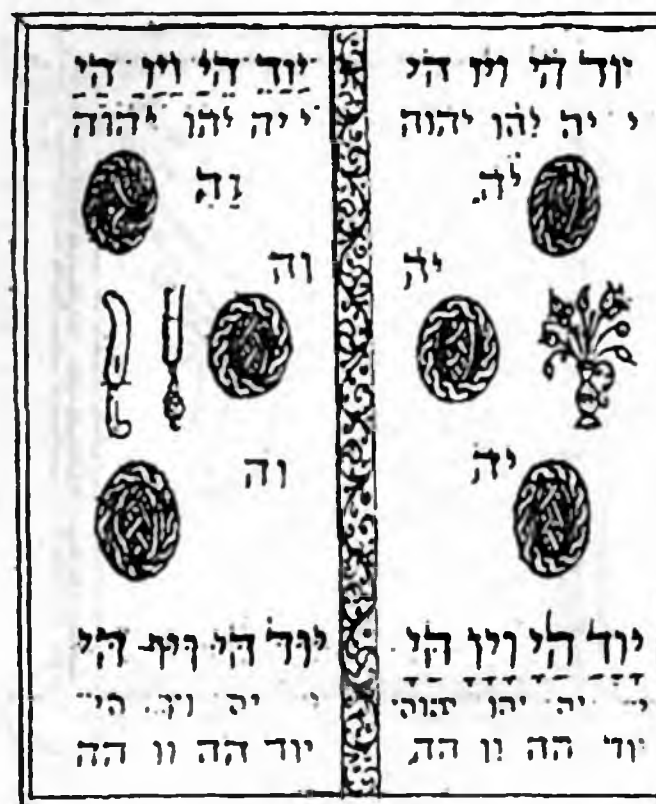 יוד הי ויו הי
י יה יהו יהוה
יה
יה
יה
יוד הי ויו הי
יה יהו יהוה
יוד הה וו הה
יוד הי ויו הי
י יה יהו יהוה
וה
וה
וה
יוד הי ויו הי
יה
יוד הה וו הה